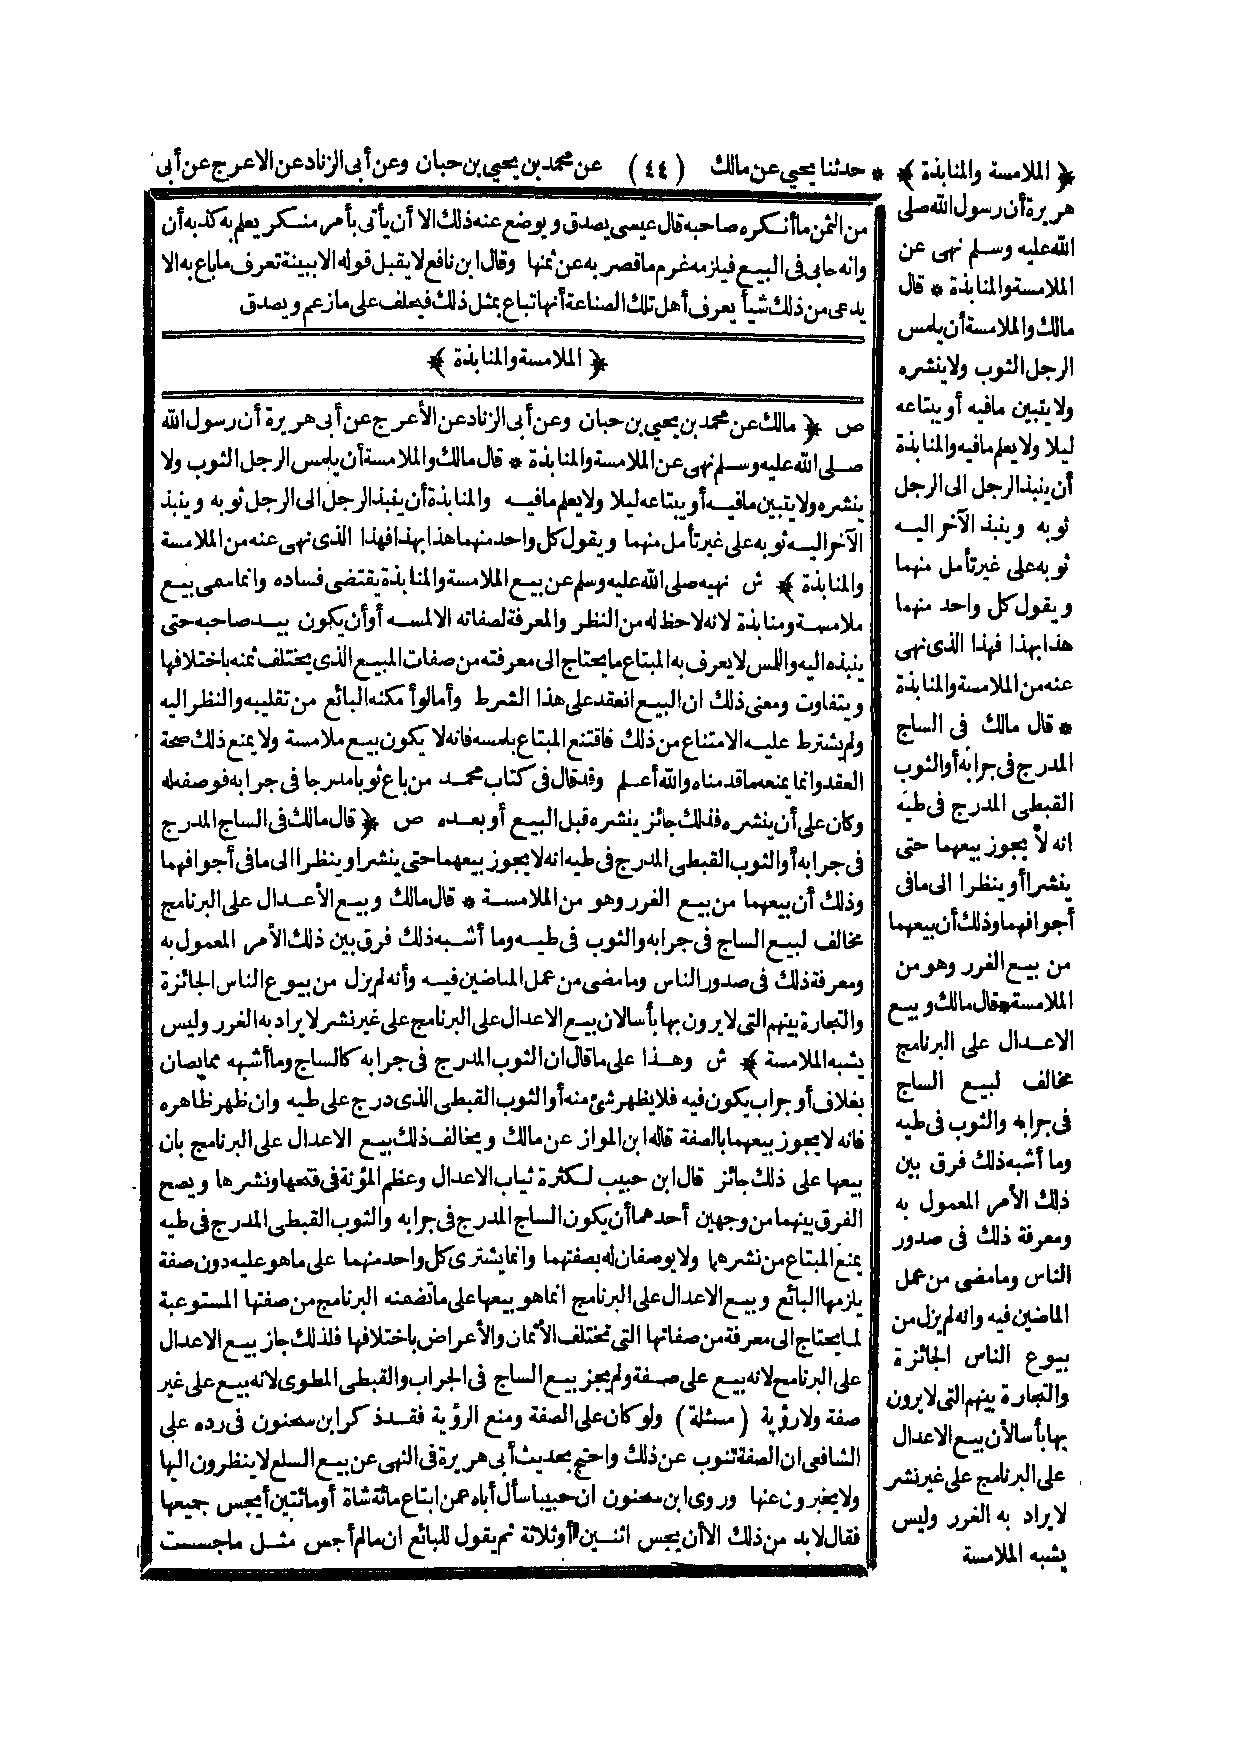 ﴿ الملامسة والمنابذة ﴾ * حدثنا يحيى عن مالك (٤٤) عن محمد بن يحيى بن حبان وعن أبى الزناد عن الاعرج عن أبى
هريرة أن رسول الله صلى
الله عليه وسلم نهى عن
الملامسة والمنابذة * قال
مالك والملامسة أن يلمس
الرجل الثوب ولا ينشره
ولا يتبين مافيه أو يبتاعه
ليلا ولا يعلم مافيه والمنابذة
أن ينبذ الرجل الى الرجل
ثوبه وينبذ الآخر اليه
ثوبه على غير تأمل منهما
ويقول كل واحد منهما
هذا بهذا فهذا الذى نهى
عنه من الملامسة والمنابذة
* قال مالك فى الساج
المدرج فى جرابه أو الثوب
القبطى المدرج فى طيه
انه لا يجوز بيعهما حتى
ينشرا أو ينظرا الى مافى
أجوافهما وذلك أن بيعهما
من بيع الغرر وهو من
الملامسة * قال مالك وبيع
الاعدال على البرنامج
مخالف لبيع الساج
فى جرابه والثوب فى طيه
وما أشبه ذلك فرق بين
ذلك الأمر المعمول به
ومعرفة ذلك فى صدور
الناس وما مضى من عمل
الماضين فيه وانه لم يزل من
بيوع الناس الجائزة
والتجارة بينهم التى لا يرون
بها بأسا لأن بيع الاعدال
على البرنامج على غير نشر
لا يراد به الغرر وليس
يشبه الملامسة
من الثمن ما أنكره صاحبه قال عيسى يصدق ويوضع عنه ذلك الا أن يأتى بأمر منكر يعلم به كذبه أن
وانه حابى فى البيع فيلزمه غرم ما قصر به عن ثمنها وقال ابن نافع لا يقبل قوله الا ببينة تعرف ما باع به الا
يدعى من ذلك شيأ يعرف أهل تلك الصناعة أنها تباع بمثل ذلك فيحلف على ما زعم ويصدق
﴿ الملامسة والمنابذة ﴾
ص ﴿ مالك عن محمد بن يحيى بن حبان وعن أبى الزناد عن الأعرج عن أبى هريرة أن رسول الله
صلى الله عليه وسلم نهى عن الملامسة والمنابذة * قال مالك والملامسة أن يلمس الرجل الثوب ولا
ينشره ولا يتبين مافيه أو يبتاعه ليلا ولا يعلم مافيه والمنابذة أن ينبذ الرجل الى الرجل ثوبه وينبذ
الآخر اليه ثوبه على غير تأمل منهما ويقول كل واحد منهما هذا بهذا فهذا الذى نهى عنه من الملامسة
والمنابذة ﴾ ش نهيه صلى الله عليه وسلم عن بيع الملامسة والمنابذة يقتضى فساده وانما سمى بيع
ملامسة ومنابذة لانه لاحظ له من النظر والمعرفة لصفاته الا لمسه أو أن يكون بيد صاحبه حتى
ينبذه اليه واللمس لا يعرف به المبتاع ما يحتاج الى معرفته من صفات المبيع الذى يختلف ثمنه باختلافها
ويتفاوت ومعنى ذلك ان البيع انعقد على هذا الشرط وأما لو أمكنه البائع من تقليبه والنظر اليه
ولم يشترط عليه الامتناع من ذلك فاقتنع المبتاع بلمسه فانه لا يكون بيع ملامسة ولا يمنع ذلك صحة
العقد وانما يمنعه ما قدمناه والله أعلم وقد قال فى كتاب محمد من باع ثوبا مدرجا فى جرابه فوصفه له
وكان على أن ينشره فذلك جائز ينشره قبل البيع أو بعده ص ﴿ قال مالك فى الساج المدرج
فى جرابه أو الثوب القبطى المدرج فى طيه انه لا يجوز بيعهما حتى ينشرا وينظرا الى مافى أجوافهما
وذلك أن بيعهما من بيع الغرر وهو من الملامسة * قال مالك وبيع الأعدال على البرنامج
مخالف لبيع الساج فى جرابه والثوب فى طيه وما أشبه ذلك فرق بين ذلك الأمر المعمول به
ومعرفة ذلك فى صدور الناس وما مضى من عمل الماضين فيه وأنه لم يزل من بيوع الناس الجائزة
والتجارة بينهم التى لا يرون بها بأسا لان بيع الاعدال على البرنامج على غير نشر لا يراد به الغرر وليس
يشبه الملامسة ﴾ ش وهذا على ما قال ان الثوب المدرج فى جرابه كالساج وما أشبه مما يصان
بغلاف أو جراب يكون فيه فلا يظهر شئ منه أو الثوب القبطى الذى درج على طيه وان ظهر ظاهره
فانه لا يجوز بيعهما بالصفة قاله ابن المواز عن مالك ويخالف ذلك بيع الاعدال على البرنامج بان
بيعها على ذلك جائز قال ابن حبيب لكثرة ثياب الاعدال وعظم المؤنة فى فتحها ونشرها ويصح
الفرق بينهما من وجهين أحدهما أن يكون الساج المدرج فى جرابه والثوب القبطى المدرج فى طيه
يمنع المبتاع من نشرها ولا يوصفان له بصفتهما وانما يشترى كل واحد منهما على ما هو عليه دون صفة
يلزمها البائع وبيع الاعدال على البرنامج انما هو بيعها على ما تضمنه البرنامج من صفتها المستوعبة
لما يحتاج الى معرفة من صفاتها التى تختلف الأثمان والأعراض باختلافها فلذلك جاز بيع الاعدال
على البرنامج لانه بيع على صفة ولم يجز بيع الساج فى الجراب والقبطى المطوى لانه بيع على غير
صفة ولا رؤية (مسئلة) ولو كان على الصفة ومنع الرؤية فقد ذكر ابن سحنون فى رده على
الشافعى ان الصفة تنوب عن ذلك واحتج بحديث أبى هريرة فى النهى عن بيع السلع لا ينظرون اليها
ولا يخبرون عنها وروى ابن سحنون ان حبيبا سأل أباه عمن ابتاع مائة شاة أو مائتين أيجس جميعها
فقال لا بد من ذلك الا أن يجس اثنين أو ثلاثة ثم يقول للبائع ان مالم أجس مثل ما جسست